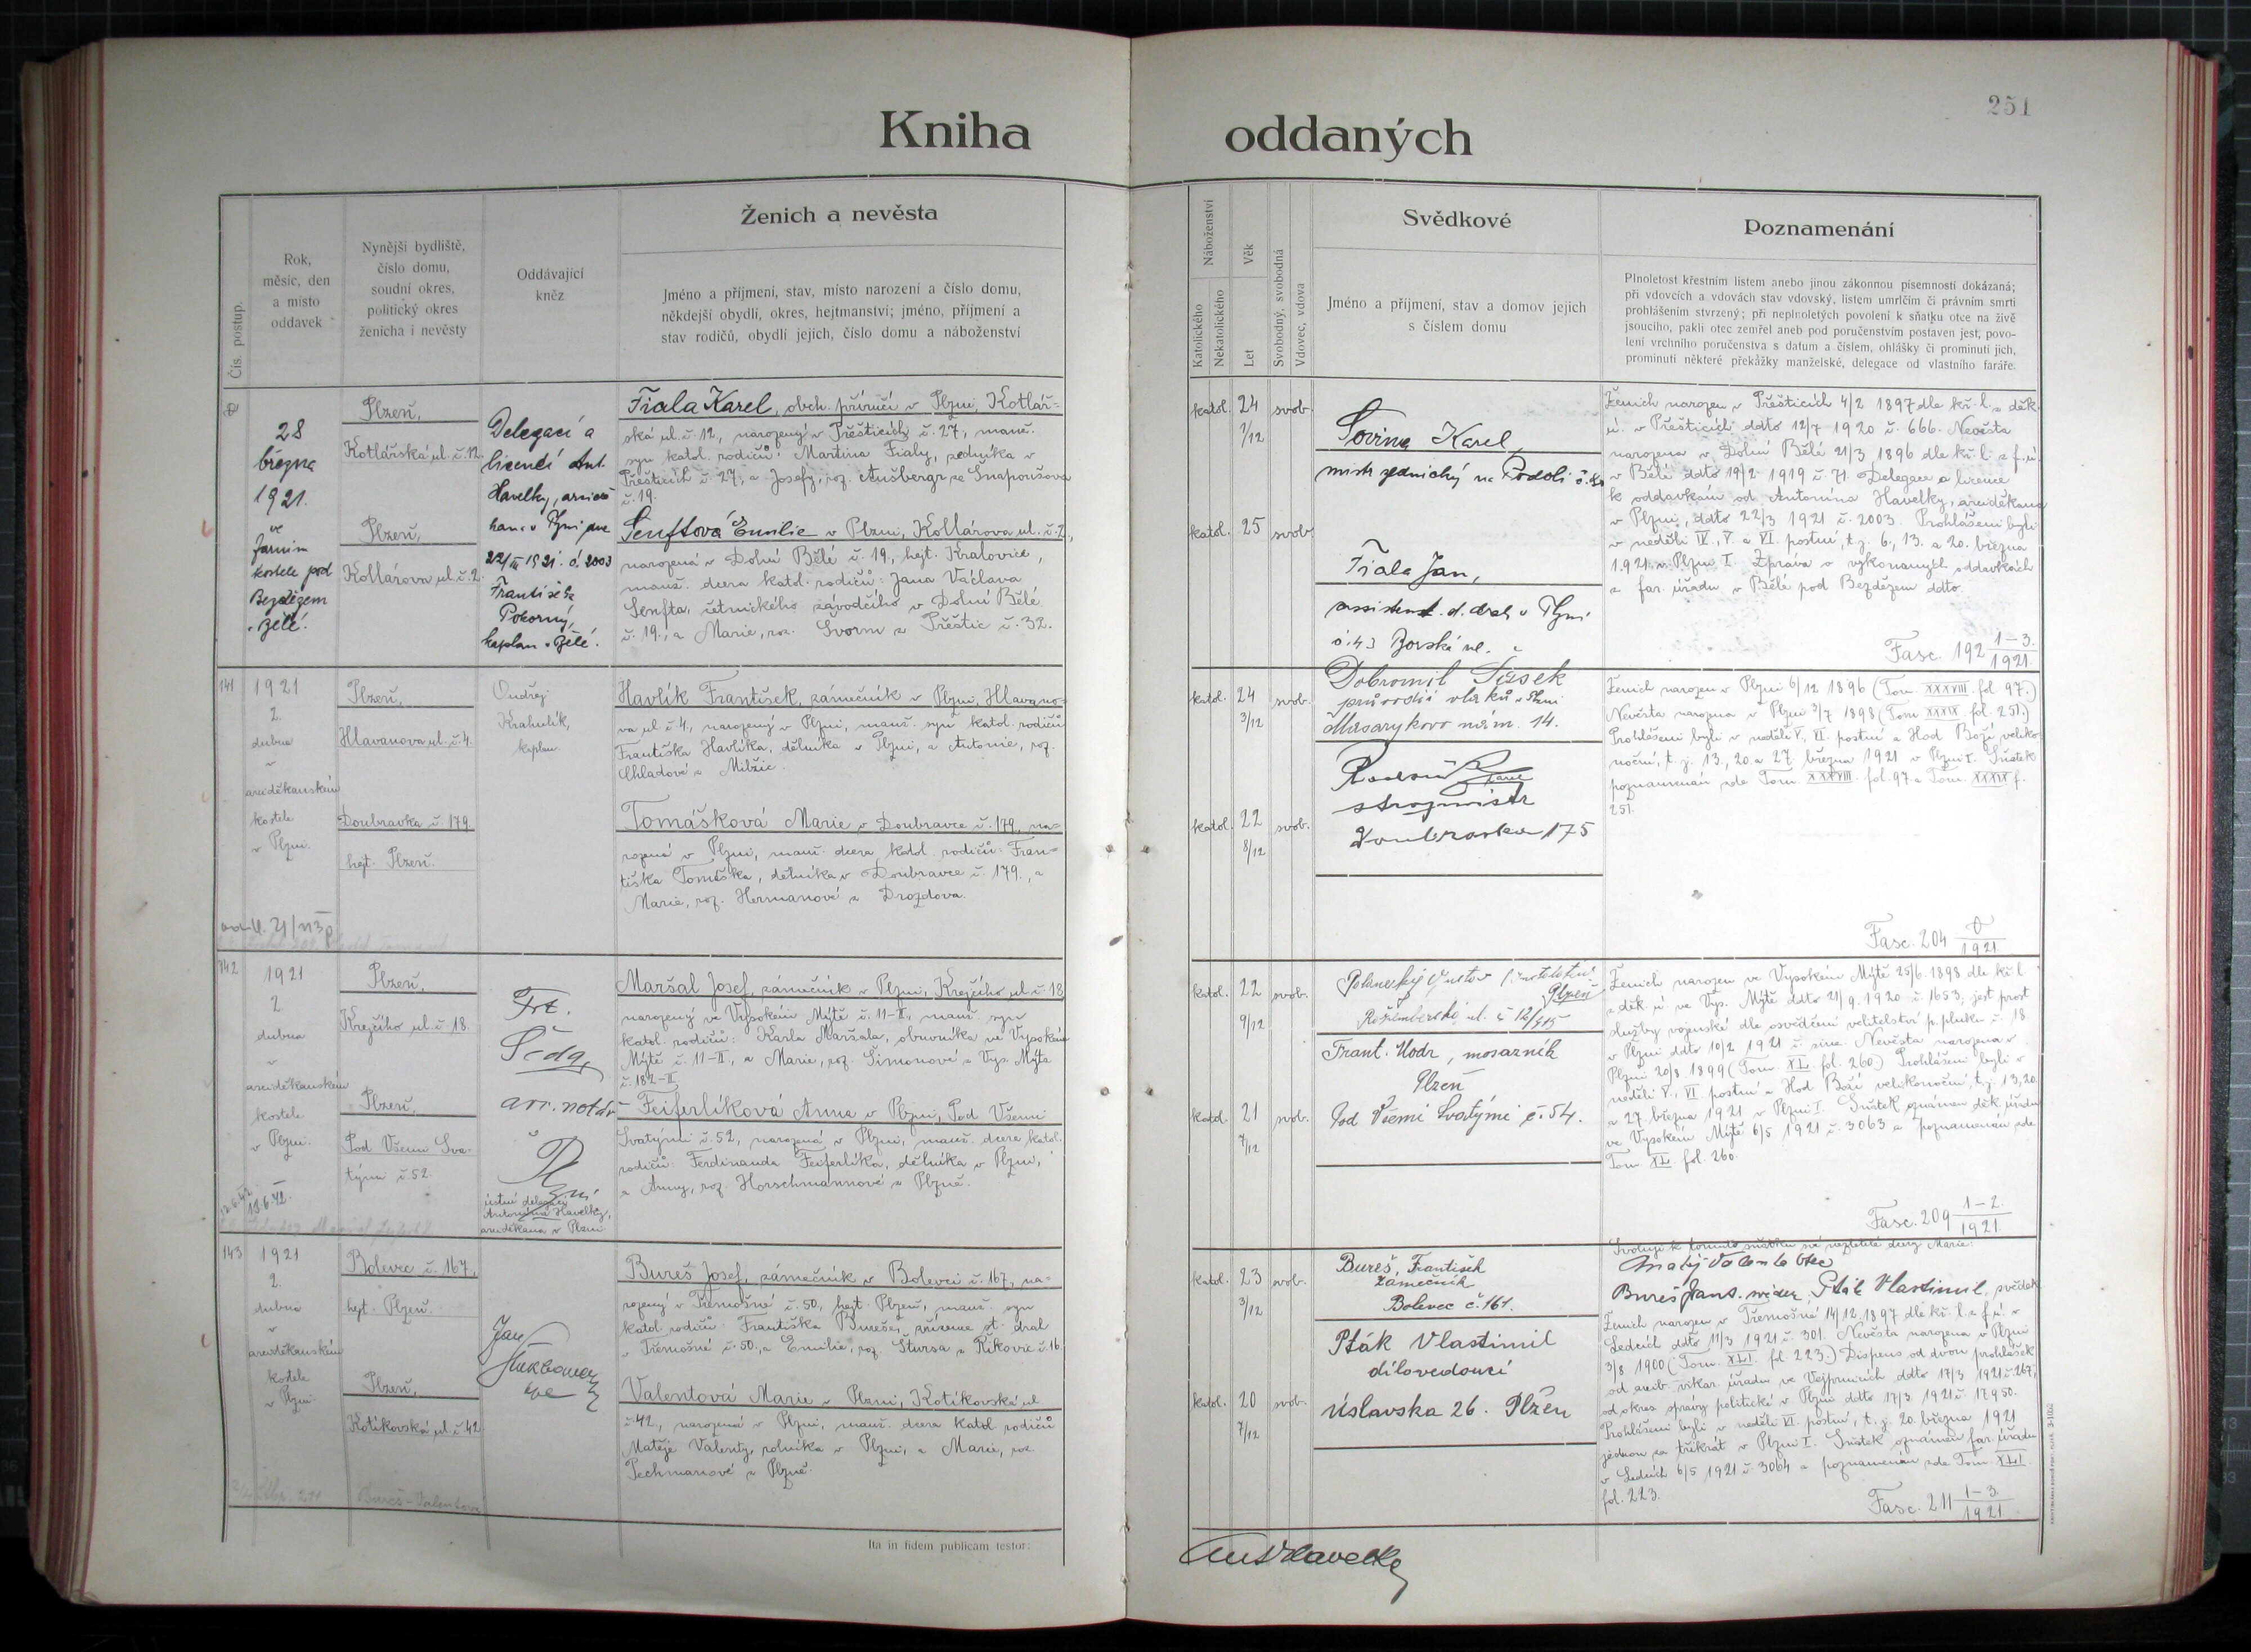 251
Kniha oddaných
Čís. postup.
Rok,
měsíc, den
a místo
oddavek
Nynější bydliště,
číslo domu,
soudní okres,
politický okres
ženicha i nevěsty
Oddávající
kněz
Ženich a nevěsta
Jméno a příjmení, stav, místo narození a číslo domu,
někdejší obydlí, okres, hejtmanství; jméno, příjmení a
stav rodičů, obydlí jejich, číslo domu a náboženství
Náboženství
Katolického
Nekatolického
Věk
Let
Svobodný, svobodná
Vdovec, vdova
Svědkové
Jméno a příjmení, stav a domov jejich
s číslem domu
Poznamenání
Plnoletost křestním listem anebo jinou zákonnou písemností dokázaná;
při vdovcích a vdovách stav vdovský, listem umrlčím či právním smrti
prohlášením stvrzený; při neplnoletých povolení k sňatku otce na živě
jsoucího, pakli otec zemřel aneb pod poručenstvím postaven jest, povo-
lení vrchního poručenstva s datum a číslem, ohlášky či prominutí jich,
prominutí některé překážky manželské, delegace od vlastního faráře.
28
března
1921.
ve
farním
kostele pod
Bezdězem
v Bělé.
Plzeň,
Kotlářská ul. č. 12.
Plzeň,
Kollárova ul. č. 2.
Delegací a
licencí Ant.
Havelky, arcidě
kana v Plzni ze
22/III 1921. č. 2003
František
Pokorný,
kaplan v Bělé.
Fiala Karel, obch. příručí v Plzni, Kotlář-
ská ul. č. 12., narozený v Přešticích č. 27, manž.
syn katol. rodičů: Martina Fialy, zedníka v
Přešticích č. 27, a Josefy, roz. Aušbergr ze Snapoušova
č. 19.
Senftová Emilie v Plzni, Kollárova ul. č. 2.,
narozená v Dolní Bělé č. 19., hejt. Kralovice,
manž. dcera katol. rodičů: Jana Václava
Senfta, četnického závodčího v Dolní Bělé
č. 19., a Marie, roz. Svorm z Přeštic č. 32.
katol. 24 svob.
1/12
katol. 25 svob.
Karel,
mistr zednický na Podolí
Fiala Jan,
assistent st. drah v Plzni
č. 43 Borská ul.
Ženich narozen v Přešticích 4/2 1897 dle kř. l. z děk.
ú. v Přešticích ddto 12/7 1920 č. 666. Nevěsta
narozena v Dolní Bělé 21/3 1896 dle kř. l. z f. ú.
v Bělé ddto 19/2 1919 č. 71. Delegace a licence
k oddavkám od Antonína Havelky, arciděkana
v Plzni, ddto 22/3 1921 č. 2003. Prohlášeni byli
v neděli IV., V. a VI. postní, t. j. 6., 13. a 20. března
1921 v Plzni I. Zpráva o vykonaných oddavkách
z far. úřadu v Bělé pod Bezdězem ddto.
Fasc. 192 1-3./1921.
141
1921
2.
dubna
v
arciděkanském
kostele
v Plzni.
Plzeň,
Hlavanova ul. č. 4.
Doubravka č. 179
hejt. Plzeň.
Ondřej
Krahulík,
kaplan.
Havlík František, zámečník v Plzni, Hlavano-
va ul. č. 4., narozený v Plzni, manž. syn katol. rodičů
Františka Havlíka, dělníka v Plzni, a Antonie, roz.
Chladové z Milžic.
Tomášková Marie v Doubravce č. 179, na-
rozená v Plzni, manž. dcera katol. rodičů: Fran-
tiška Tomáška, dělníka v Doubravce č. 179., a
Marie, roz. Hermanové z Drozdova.
katol. 24 svob.
3/12
katol. 22 svob.
8/12
Dobromil
průvodčí vlaků v Plzni
Masarykovo nám. 14.
strojmistr
Doubravka 175
Ženich narozen v Plzni 6/12 1896 (Tom. XXXVIII. fol. 97.)
Nevěsta narozena v Plzni 3/7 1898 (Tom. XXXIX. fol. 251.)
Prohlášeni byli v neděli V., VI. postní a Hod Boží veliko-
noční, t. j. 13., 20. a 27. března 1921 v Plzni I. Sňatek
poznamenán zde Tom. XXXVIII. fol. 97 a Tom. XXXIX f.
251.
Fasc. 204 0/1921.
142
1921
2.
dubna
v
arciděkanském
kostele
v Plzni.
Plzeň,
Krejčího ul. č. 18.
Plzeň,
Pod Všemi Sva-
tými č. 52.
Frt.
Šeda,
arc. notář
ústní delegací
Antonína Havelky,
arciděkana v Plzni
Maršal Josef, zámečník v Plzni, Krejčího ul. č. 18
narozený ve Vysokém Mýtě č. 11-II., manž. syn
katol. rodičů: Karla Maršala, obuvníka ve Vysokém
Mýtě č. 11-II., a Marie, roz. Šimonové z Vys. Mýta
č. 182-II.
Feiferlíková Anna v Plzni, Pod Všemi
Svatými č. 52., narozená v Plzni, manž. dcera katol.
rodičů: Ferdinanda Feiferlíka, dělníka v Plzni,
a Anny, roz. Horschmannové z Plzně.
katol. 22 svob.
9/12
katol. 21 svob.
7/12
Plzeň
Rožmberská ul. č. 12/
Frant. Hodr, mosazník
Plzeň
Pod Všemi Svatými č. 54.
Ženich narozen ve Vysokém Mýtě 25/6. 1898 dle kř. l.
z děk. ú. ve Vys. Mýtě ddto 21/9. 1920 č. 1653, jest prost
služby vojenské dle osvědčení velitelství p. pluku č. 18
v Plzni ddto 10/2 1921 č. sine. Nevěsta narozena v
Plzni 20/8 1899 (Tom. XL. fol. 260) Prohlášeni byli v
neděli V., VI. postní a Hod Boží velikonoční, t. j. 13., 20.
a 27. března 1921 v Plzni I. Sňatek oznámen děk. úřadu
ve Vysokém Mýtě 6/5 1921 č. 3063 a poznamenán zde
Tom. XL. fol. 260.
Fasc. 209 1-2./1921.
143
1921
2.
dubna
v
arciděkanském
kostele
v Plzni.
Bolevec č. 167,
hejt. Plzeň.
Plzeň,
Kotíkovská ul. č. 42.
Bureš-Valentova
Jan
Bureš Josef, zámečník v Bolevci č. 167, na-
rozený v Třemošné č. 50, hejt. Plzeň, manž. syn
katol. rodičů: Františka Bureše, zřízence st. drah
v Třemošné č. 50., a Emilie, roz. Štursa z Řikovic č. 16
Valentová Marie v Plzni, Kotíkovská ul.
č. 42., narozená v Plzni, manž. dcera katol. rodičů
Matěje Valenty, rolníka v Plzni, a Marie, roz.
Pechmanové z Plzně.
katol. 23 svob.
3/12
katol. 20 svob.
7/12
Bureš, František
zámečník
Bolevec č. 161.
Pták Vlastimil
dílovedoucí
Úslavska 26. Plzeň
Svoluji k tomuto sňatku své nezletilé dcery Marie:
Matěj Valenta otec
Bureš Frant. svědek, Pták Vlastimil, svědek
Ženich narozen v Třemošné 14/12. 1897 dle kř. l. z f. ú. v
Ledcích ddto 11/3 1921 č. 301. Nevěsta narozena v Plzni
3/8 1900 (Tom. XLI. fol. 223.) Dispens od dvou prohlášek
od arcib. vikar. úřadu ve Vejprnicích ddto 17/3 1921 č. 267,
od okres. správy politické v Plzni ddto 17/3 1921 č. 17950.
Prohlášeni byli v neděli VI. postní, t. j. 20. března 1921
jednou za třikrát v Plzni I. Sňatek oznámen far. úřadu
v Ledcích 6/5 1921 č. 3064 a poznamenán zde Tom. XLI.
fol. 223.
Fasc. 211 1-3./1921.
Ita in fidem publicam testor:
Ant Havelka